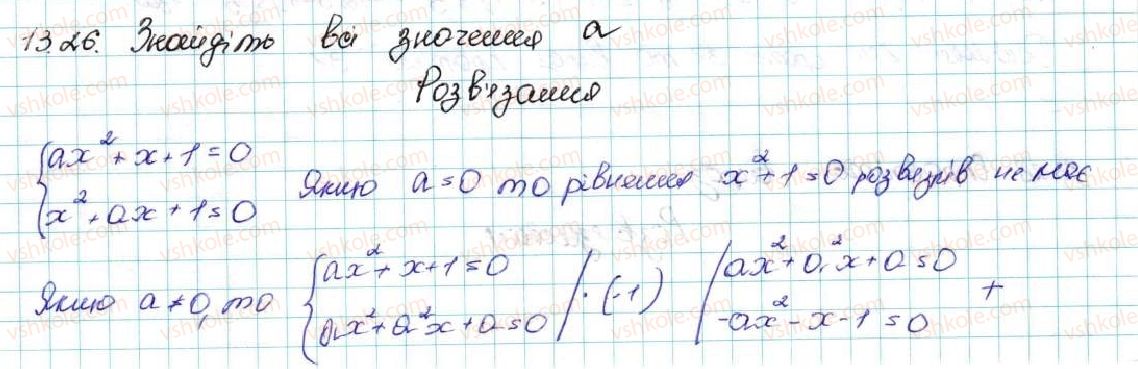 13.26. Знайдіть всі значення a
Розв'язання
{ax² + x + 1 = 0
{x² + ax + 1 = 0 Якщо a = 0 то рівняння x² + 1 = 0 розв'язків не має
Якщо a ≠ 0, то {ax² + x + 1 = 0 {ax² + a²x + a = 0 | · (-1) {ax² + a²x + a = 0 {-ax² - x - 1 = 0 +